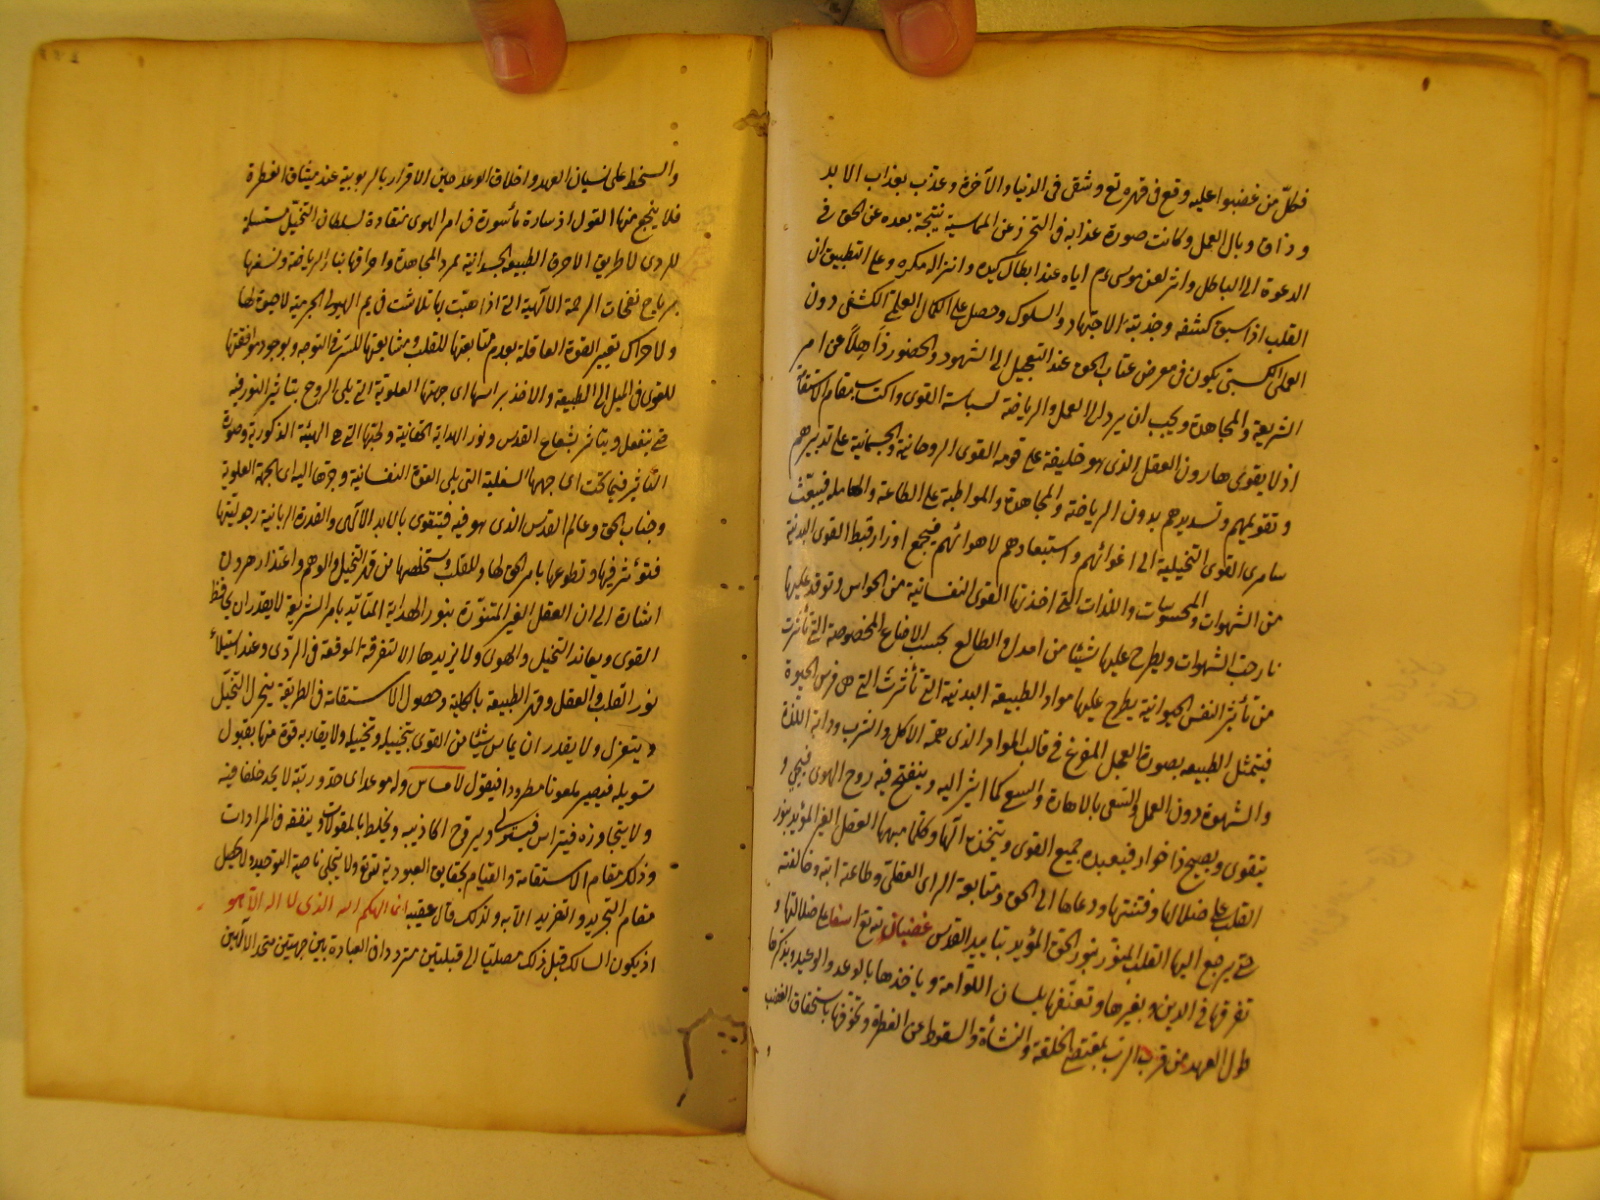 فكل من غضبوا عليه وقع في قهره تع وشقى في الدنيا والآخرة وعذب بعذاب الابد
وذاق وبال العمل وكانت صورة عذابه في التحرز عن المماسة نتيجة بعده عن الحق في
الدعوة الى الباطل واثر لعن موسى ءم اياه عند ابطال كيده وازالة مكره وعلى التطبيق ان
القلب اذا سبق كشفه وجذبته الاجتهاد والسلوك وحصل على الكمال العلمى الكشفى دون
العلمى الكسبى يكون في معرض عتاب الحق عند التعجيل الى الشهود والحضور ذاهلا عن امر
الشريعة والمجاهدة ويجب ان يرد الى العمل والرياضة لسياسة القوى واكتساب مقام الاستقامة
اذ لا يقوى هارون العقل الذى هو خليفة على قومه القوى الروحانية والجسمانية على تدبيرهم
وتقويمهم وتسديدهم بدون الرياضة والمجاهدة والمواظبة على الطاعة والمعاملة فينبعث
سامرى القوى التخيلية الى اغوائهم واستبعادهم لاهوائهم فيجمع اوزار قبط القوى البدنية
من الشهوات والمحسوسات واللذات التى اخذتها القوى النفسانية من الحواس وتوقد عليها
نار حب الشهوات ويطرح عليها شيئا من امداد الطالع بحسب الاوضاع المخصوصة التى تأثرت
من تأثير النفس الحيوانية يطرح عليها مواد الطبيعة البدنية التى تأثرت التى هى فرس الحيوة
فيتمثل الطبيعة بصورة العجل المفرغ في قالب المواد الذى همه الاكل والشرب ودأبه اللذة
والشهوة دون العمل والسعى بالاهارة والسبع كما اشير اليه وينفتح فيه روح الهوى فيحيى و
يتقوى ويصيح ذا خوار فيعبده جميع القوى ويتخذه الها وكلما ينبهها العقل الغير المؤيد بنور
القلب على ضلالها وفتنتها ودعاها الى الحق ومتابعة الراى العقلى وطاعته ابته وخالفته
حتى يرجع اليها القلب المنور بنور الحق المؤيد بتأييد القدس غضبان لله تع اسفا على ضلالتها و
تفرقها في الدين ويغيرها وتعنفها بلسان اللوامة ويأخذها بالوعد والوعيد ويذكرها
طول العهد من قرب الرب بمقتضى الخلقة والنشأة والسقوط عن الفطرة وتخوفها باستحقاق الغضب
والسخط على نسيان العهد واخلاق الوعد حين الاقرار بالربوبية عند ميثاق الفطرة
فلا ينجع منها القول اذ سادة مأسورة في امر الهوى منقادة لسلطان التخيل مستسلمة
للردى لا طريق الاحرق الطبيعة الجسدانية بمرد المجاهدة واحراقها بنار الرياضة ونسفها
برياح نفحات الرحمة الالهية التى اذا هبت بها تلاشت في يم الهيولى الجرمية لا صوة لها
ولا حراك تعيير القوة العاقلة بعدم متابعتها للقلب ومشايعتها للسر في التوجه وبوجود موافقتها
للقوى في الميل الى الطبيعة والاخذ براسها اى جهتها العلوية التى يلى الروح بتأثير النور فيه
حتى ينفعل ويتأثر بشعاع القدس ونور الهداية الحقانية ولحيتها التى هى الهيئة الذكورية وصورة
التأثير فيما تحت اى جهتها السفلية التى يلى القوة النفسانية وجرها اليه اى الجهة العلوية
وجناب الحق وعالم القدس الذى هو فيه فيتقوى بالايد الالهى والقدرة الربانية رجوليتها
فتؤثر فيها وتطوعها بامر الحق لها وللقلب وتستخلصها من قهر التخيل والوهم واعتذار هرون
اشارة الى ان العقل الغير المتنورة بنور الهداية المتأيد بامر الشريعة لا يقدر ان يحافظ
القوى ويعاند التخيل والهوى ولا يزيدها الا التفرقة الموقعة في الردى وعند استيلاء
نور القلب والعقل وقهر الطبيعة بالكلية وحصول الاستقامة في الطريقة ينخزل التخيل
وينعزل ولا يقدر ان يماس شيئا من القوى بتخييله وتخيله ولا يقاربه قوة منها بقبول
تسويله فيصير ملعونا مطرودا فيقول لا مساس وله موعد اى حد ورتبة لا يجد خلفا فيه
ولا يتجاوزه فيتراس فيستولى ويروج اكاذيبه ويخلط بالمقولات وينفقه في المرادات
وذلك مقام الاستقامة والقيام بحقايق العبودية لله تع ولا يتجلى ناصية التوحيد ولا يحصل
مقام التجريد والتفريد الا به ولذلك قال عقيبه انما الهكم الله الذى لا اله الا هو
اذ يكون السالك قبل ذلك مصليا الى قبلتين مترددا في العبادة بين جهتين متخذا الهين